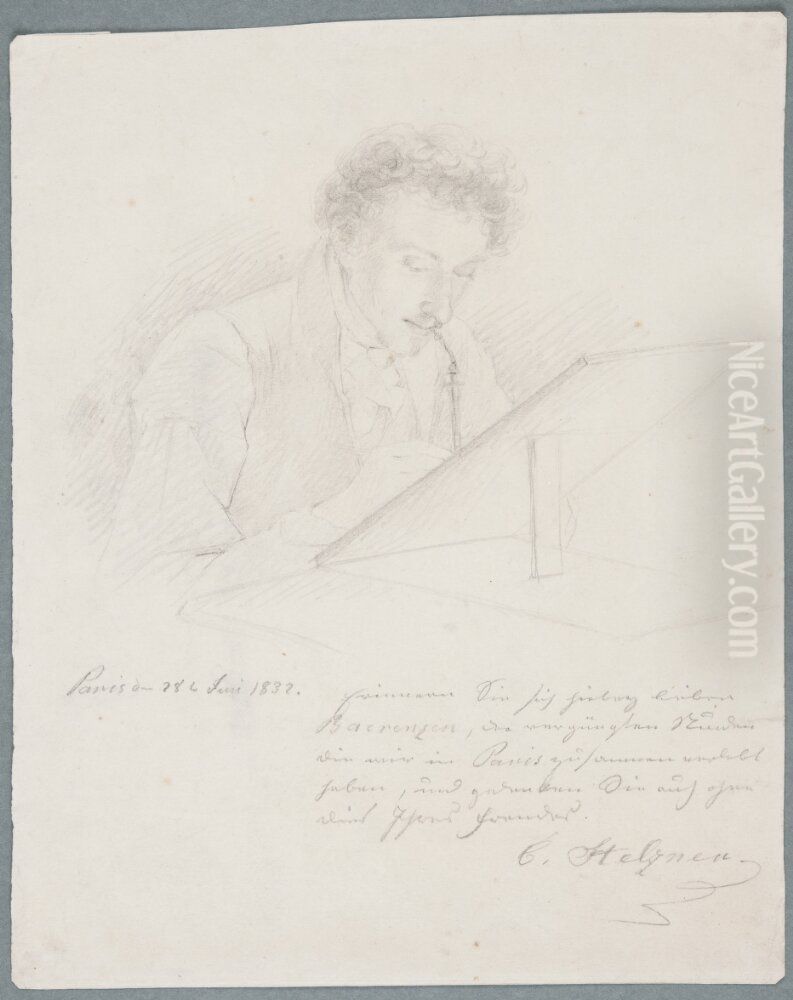 Paris den 28t Juni 1832.
Erinnern Sie sich hiebey lieber
Baerenzen, der vergnügten Stunden
die wir in Paris zusammen verlebt
haben, und gedenken Sie auch ohne
dies Ihres Freundes.
C. Stelzner
NiceArtGallery.com